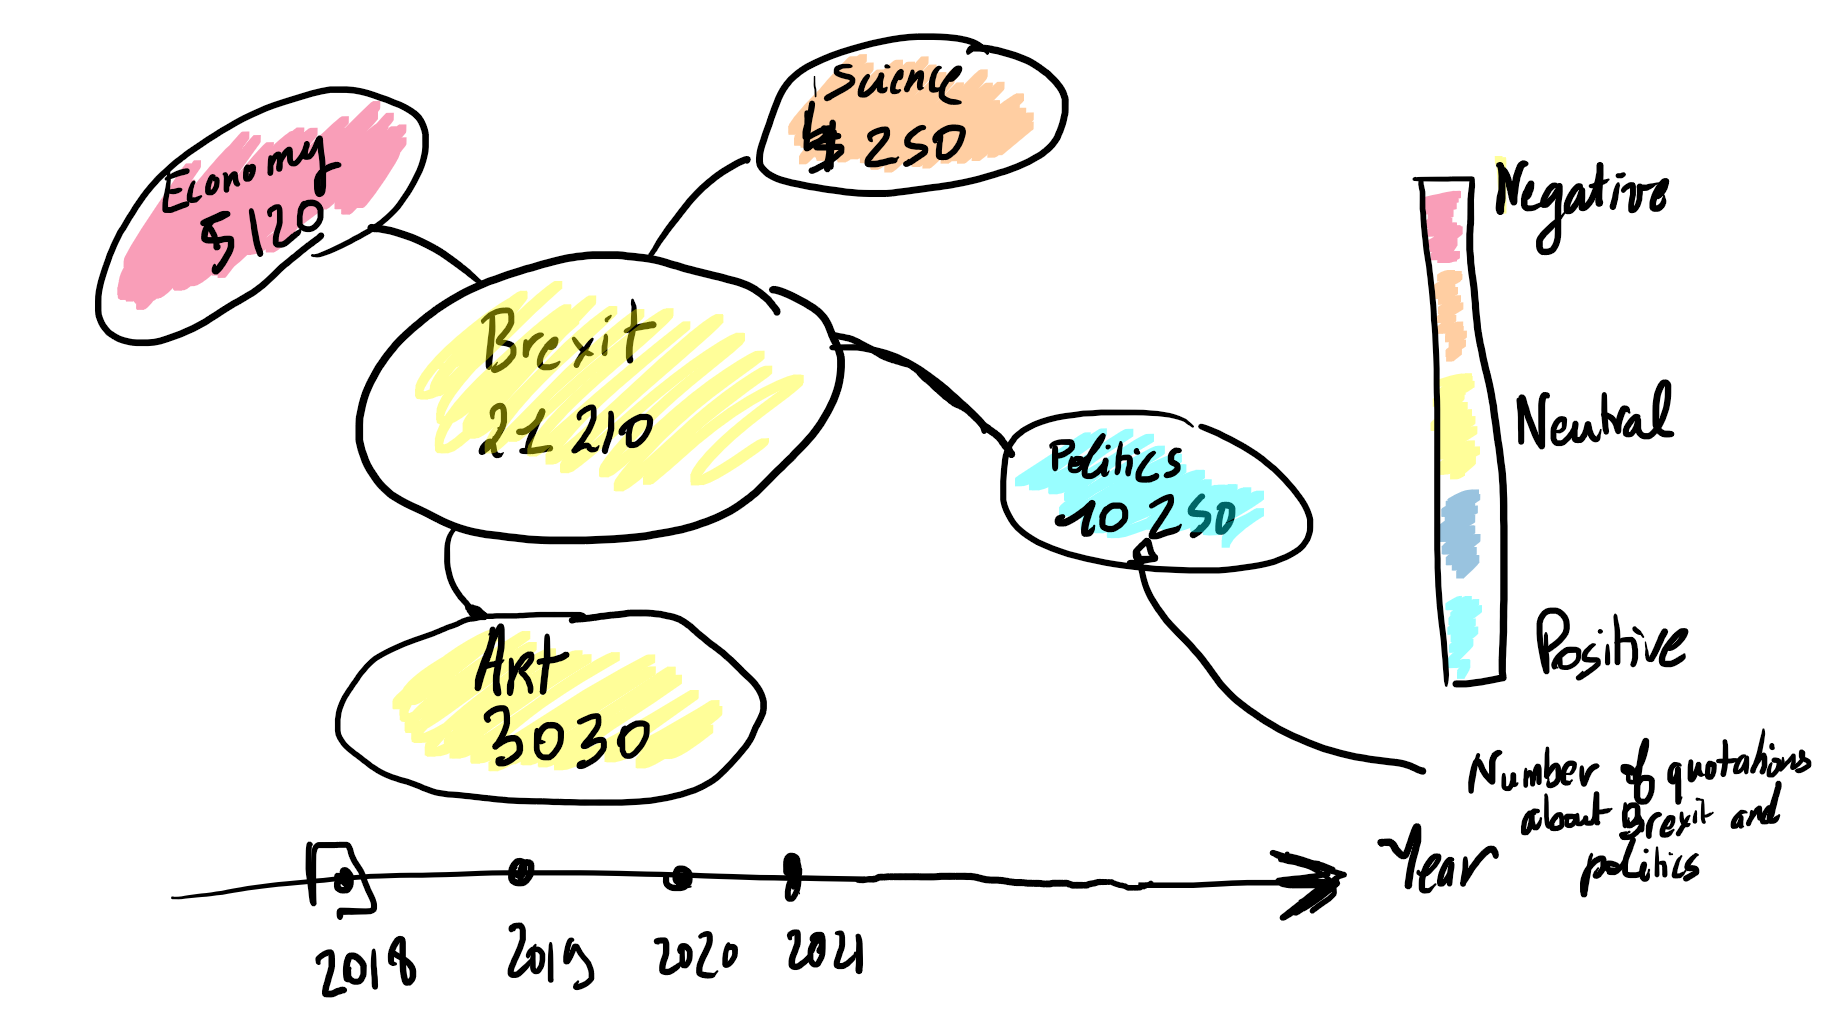 Science
250
Economy
5120
Brexit
21 210
Politics
10 250
Art
3030
Negative
Neutral
Positive
Number of quotations
about Brexit and
politics
Year
2018
2019
2020
2021